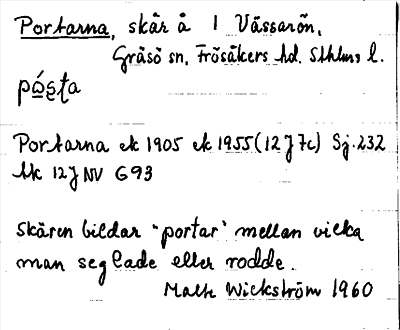 Portarna, skär å l Vässarön,
Gräsö sn, Frösåkers hd. Sthlms l.
Portarna ek 1905 ek 1955 (12 J 7c) Sj. 232
12 J NV G93
Skären bildar "portar" mellan vilka
man seglade eller rodde.
Wickström 1960